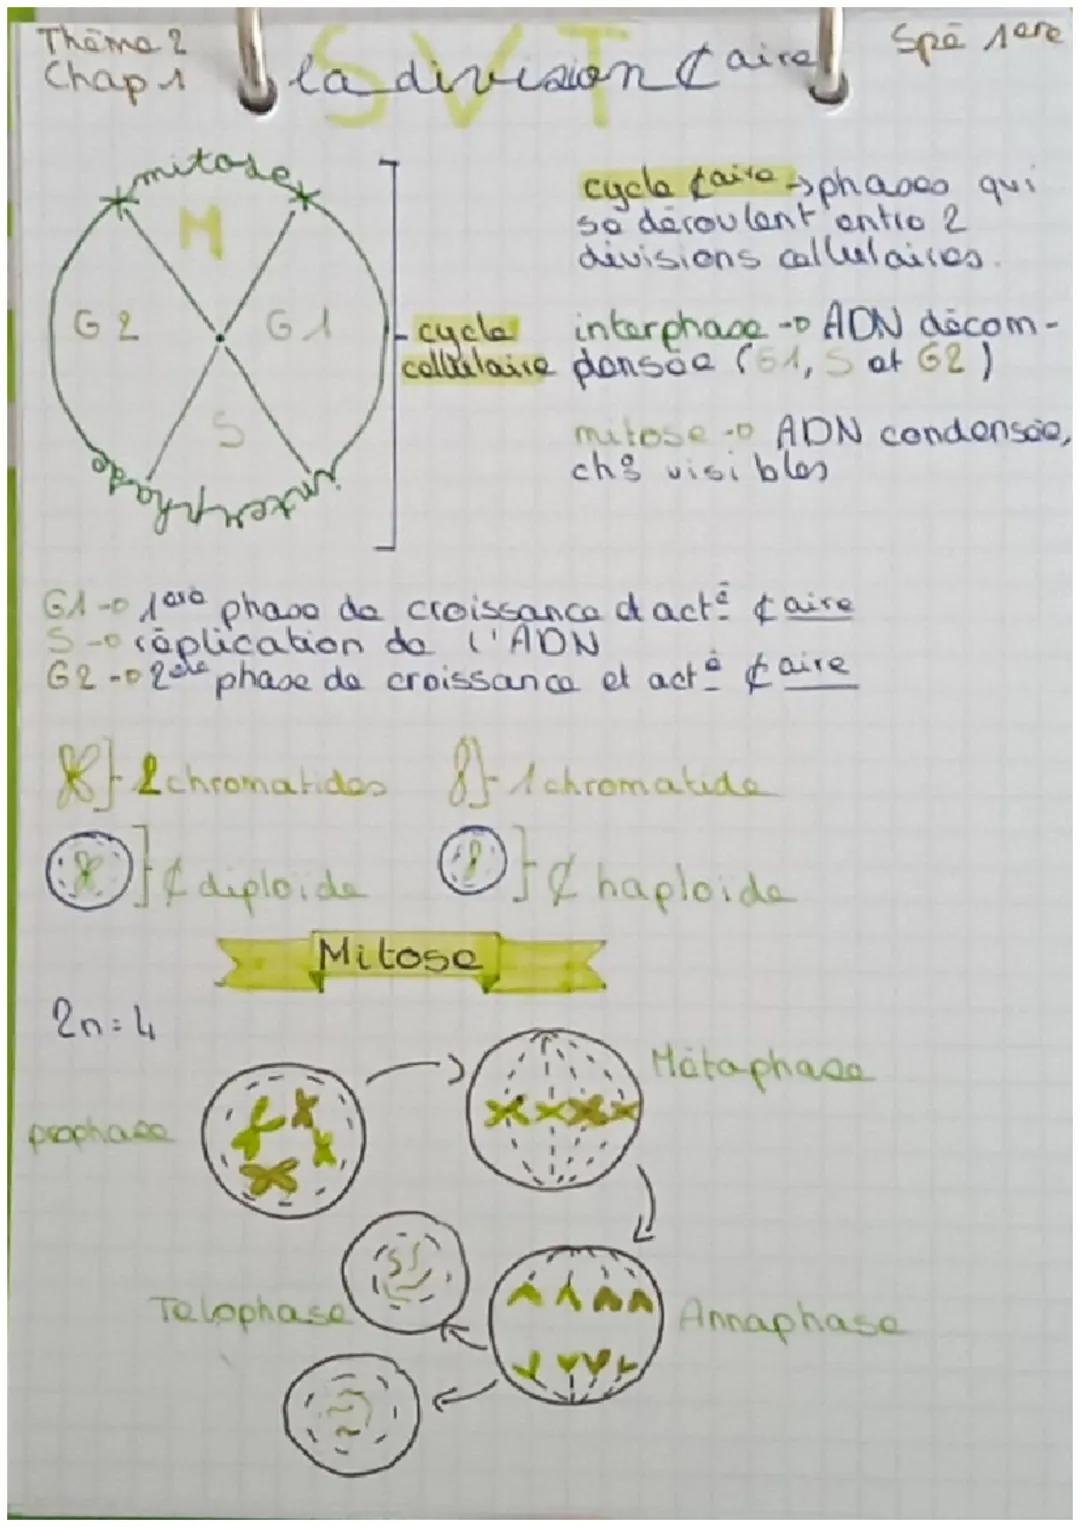 Thème 2
Chap 1
SVT
la division ¢aire
Spé 1ère
mitose
M
G2
G1
S
interphase
cycle
cellulaire
cycle ¢aire → phases qui
se déroulent entre 2
divisions cellulaires.
interphase → ADN décom-
pensée (G1, S et G2)
mitose → ADN condensée,
visibles
G1 → 1ère phase de croissance d act é ¢aire
S → réplication de l'ADN
G2 → 2ère phase de croissance et act é ¢aire
2 chromatides
1 chromatide
¢ diploide
¢ haploide
Mitose
2n = 4
Métaphase
prophase
Telophase
Annaphase